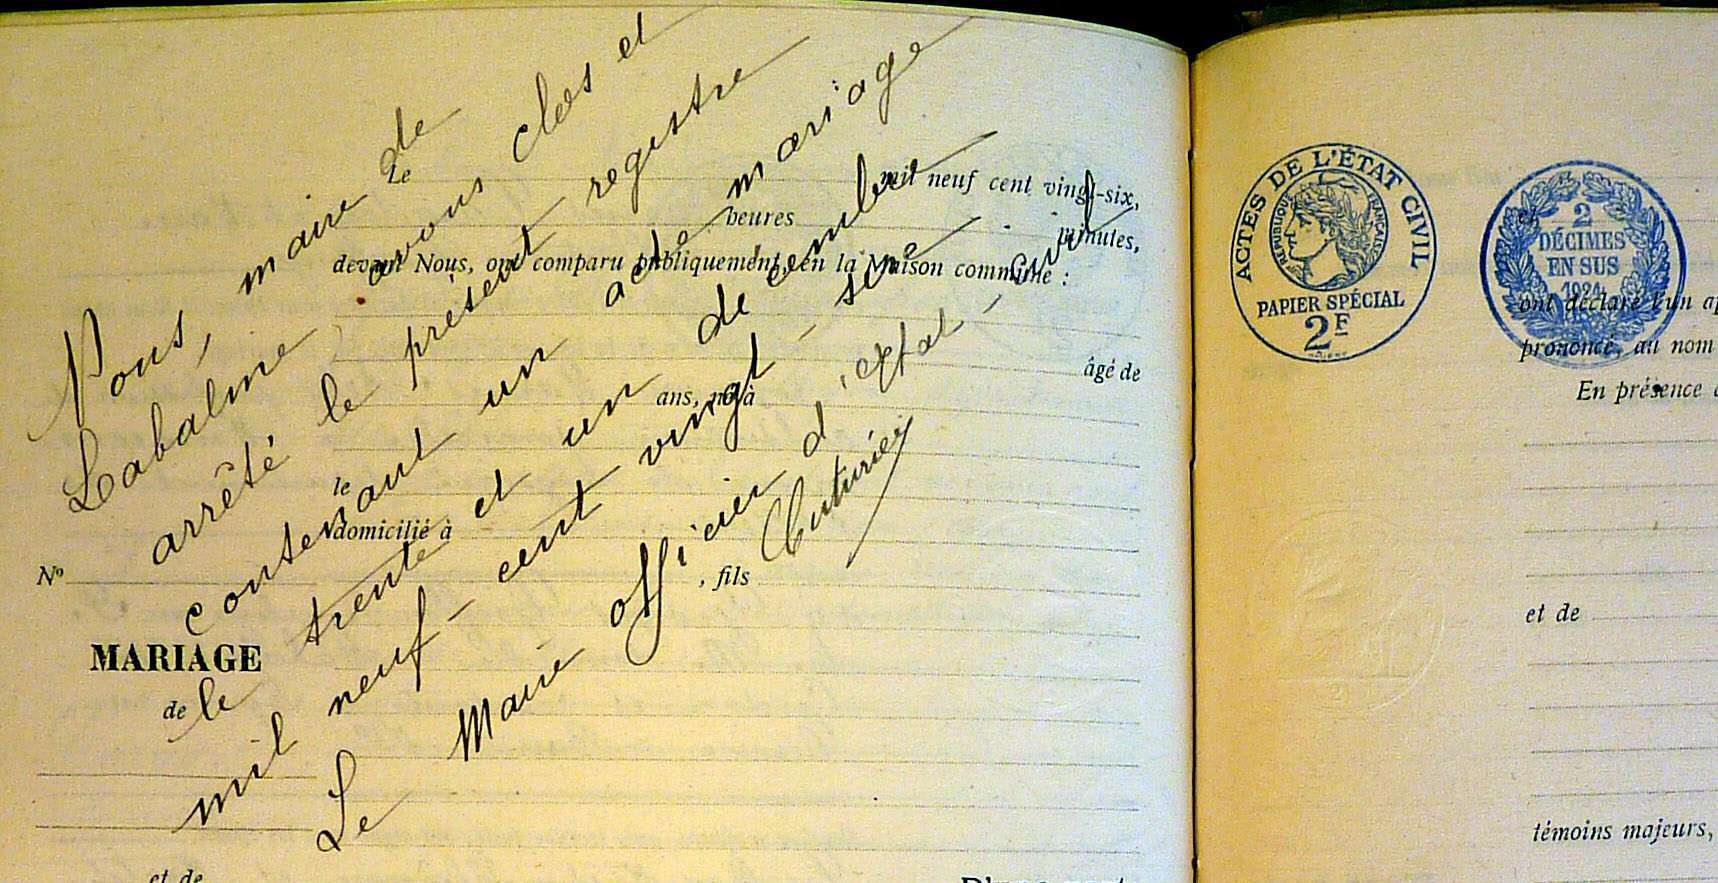 Nous, maire de
Labalme avons clos et
arrêté le présent registre
contenant un acte mariage
le trente et un décembre
mil neuf-cent vingt-six
Le Maire officier d'état-civil
Cuturier
Le mil neuf cent vingt-six,
heures minutes,
devant Nous, ont comparu publiquement, en la Maison commune :
âgé de
ans, né à
le
domicilié à
, fils
No
MARIAGE
de
et de
ACTES DE L'ÉTAT CIVIL
RÉPUBLIQUE FRANÇAISE
PAPIER SPÉCIAL
2F
2
DÉCIMES
EN SUS
1924
et
ont déclaré l'un
prononcé, au nom
En présence
et de
témoins majeurs,